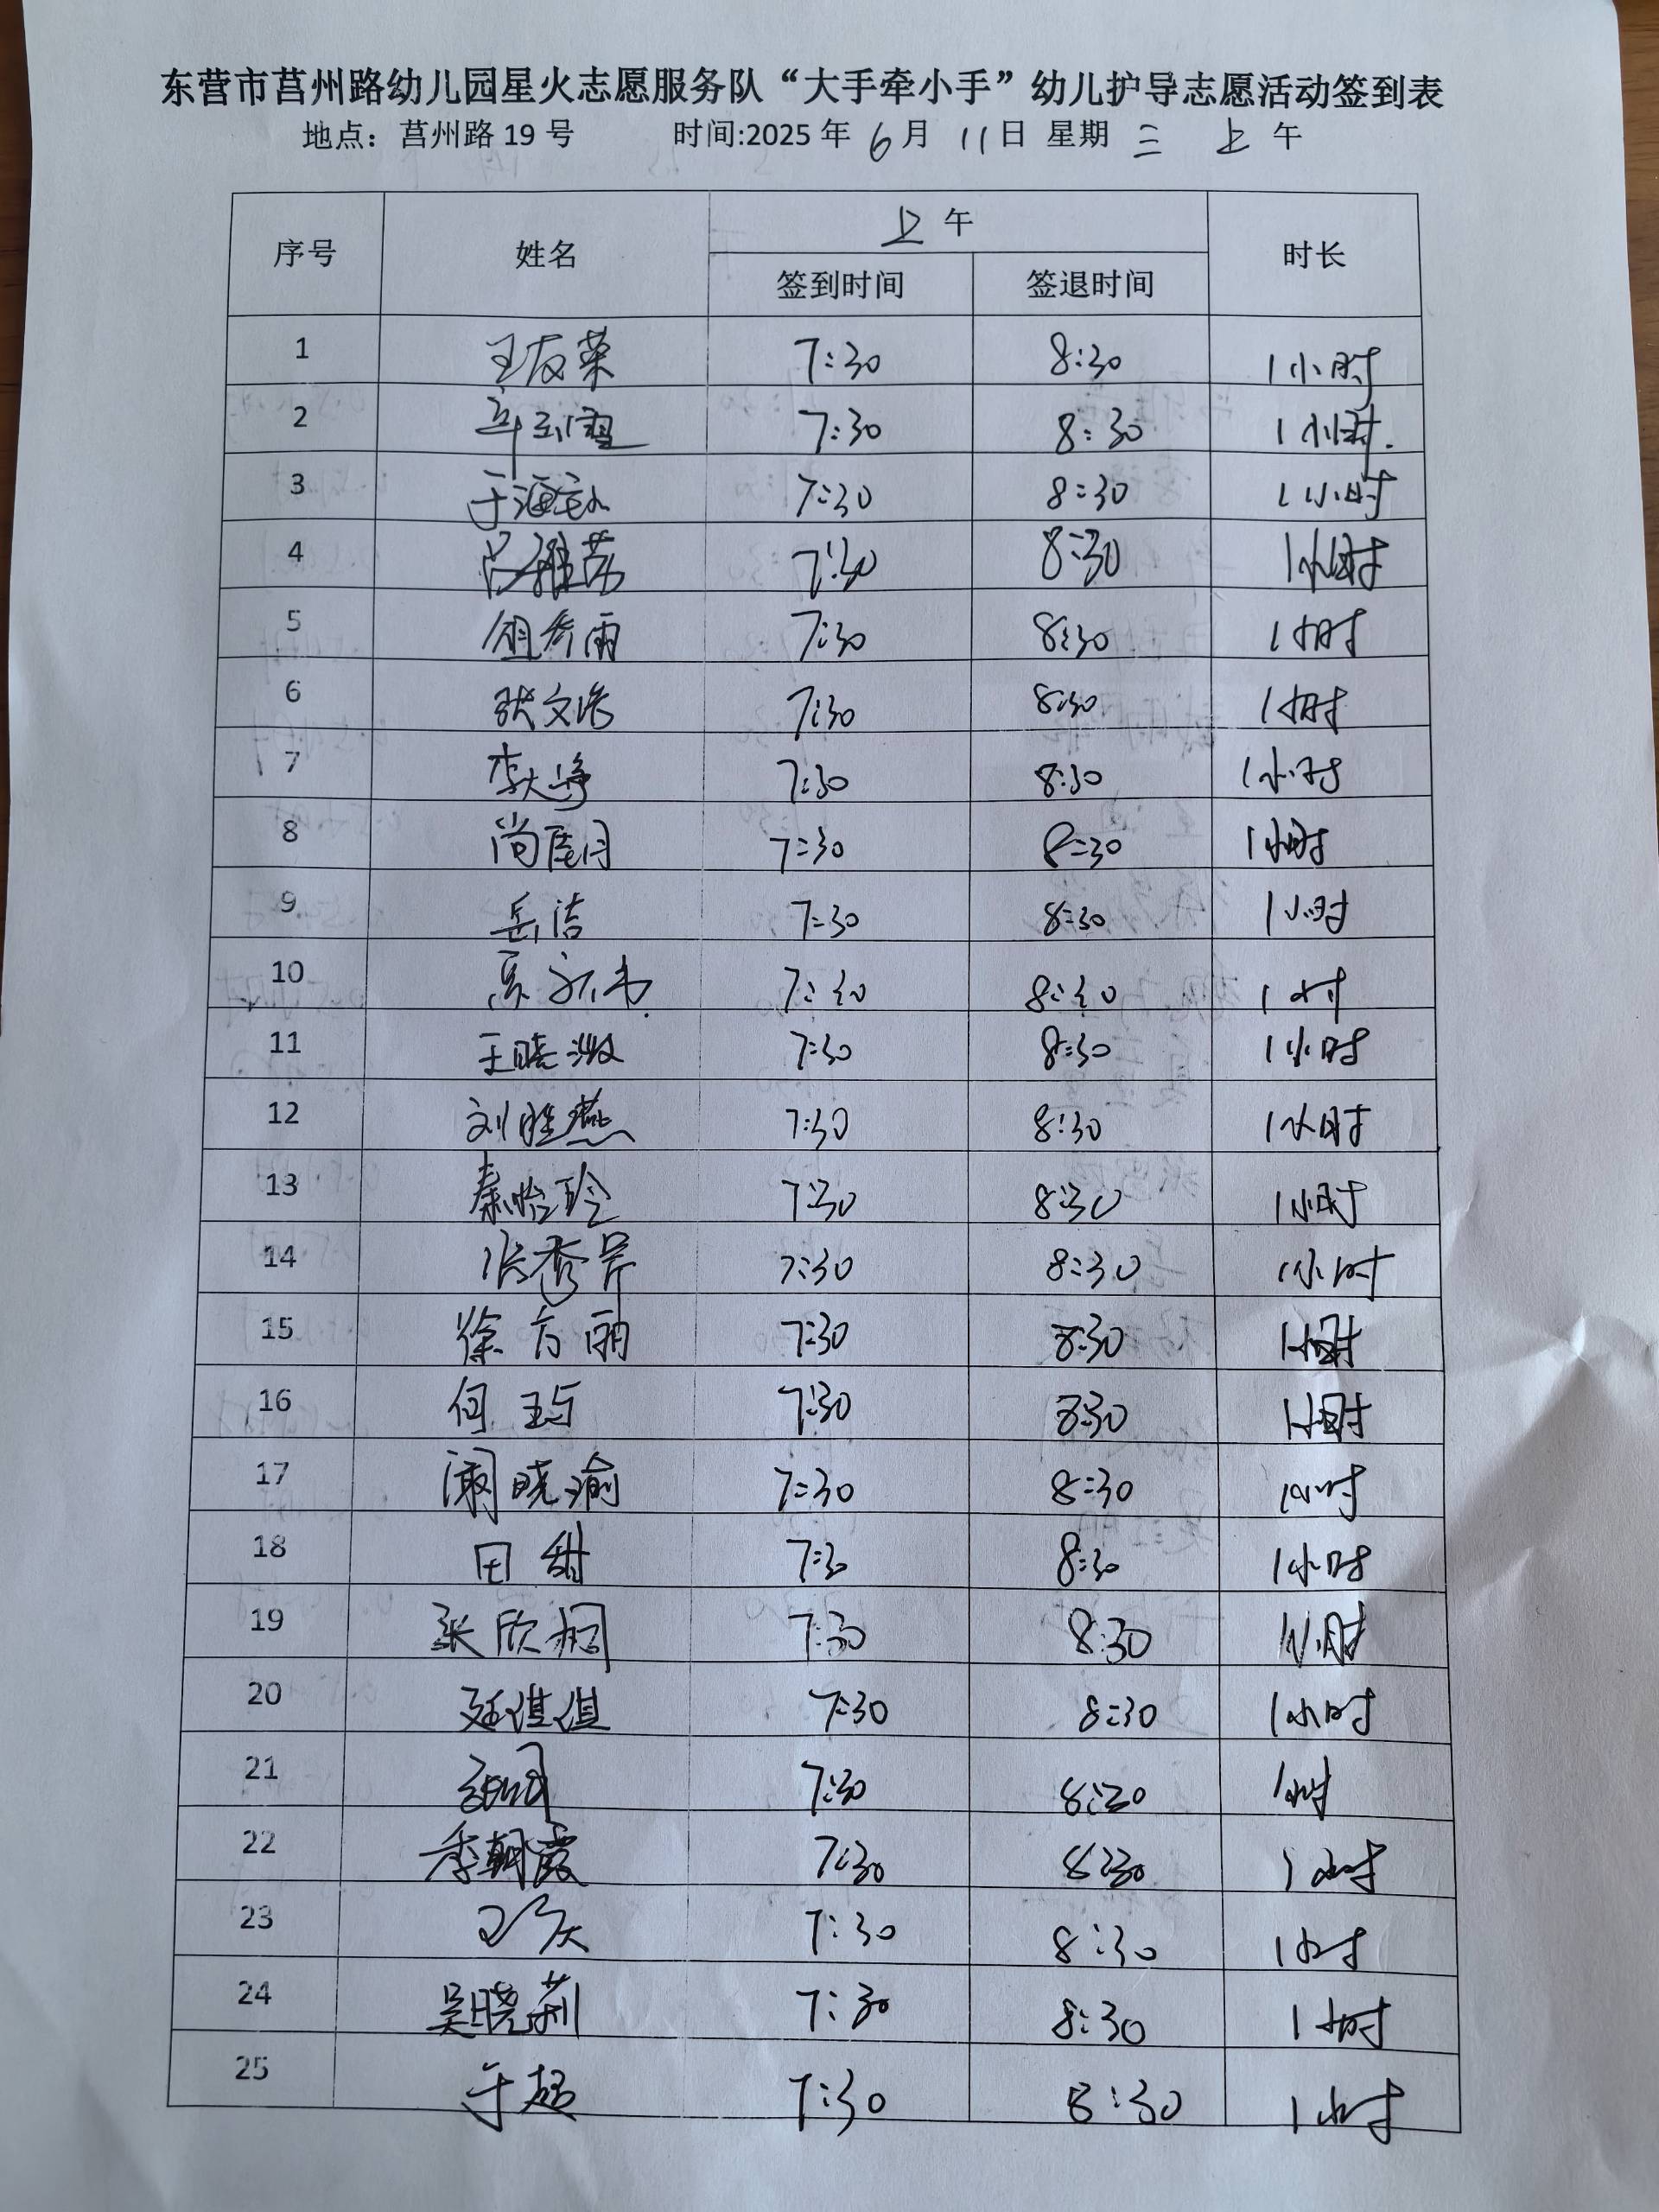 东营市莒州路幼儿园星火志愿服务队“大手牵小手”幼儿护导志愿活动签到表
地点：莒州路 19 号 时间:2025 年 6 月 11 日 星期 三 上 午
序号 姓名 上 午 时长
签到时间 签退时间
1 王友荣 7:30 8:30 1小时
2 7:30 8:30 1小时.
3 于海 7:30 8:30 1小时
4 7:30 8:30 1小时
5 雨 7:30 8:30 1小时
6 张文浩 7:30 8:30 1小时
7 李大海 7:30 8:30 1小时
8 尚月 7:30 8:30 1小时
9 岳洁 7:30 8:30 1小时
10 7:30 8:30 1小时
11 王晓 7:30 8:30 1小时
12 刘胜燕 7:30 8:30 1小时
13 秦怡玲 7:30 8:30 1小时
14 张秀芹 7:30 8:30 1小时
15 徐方丽 7:30 8:30 1小时
16 何 7:30 8:30 1小时
17 阚晓瑜 7:30 8:30 1小时
18 田甜 7:30 8:30 1小时
19 张欣桐 7:30 8:30 1小时
20 7:30 8:30 1小时
21 7:30 8:30 1小时
22 季朝霞 7:30 8:30 1小时
23 7:30 8:30 1小时
24 吴晓莉 7:30 8:30 1小时
25 于超 7:30 8:30 1小时